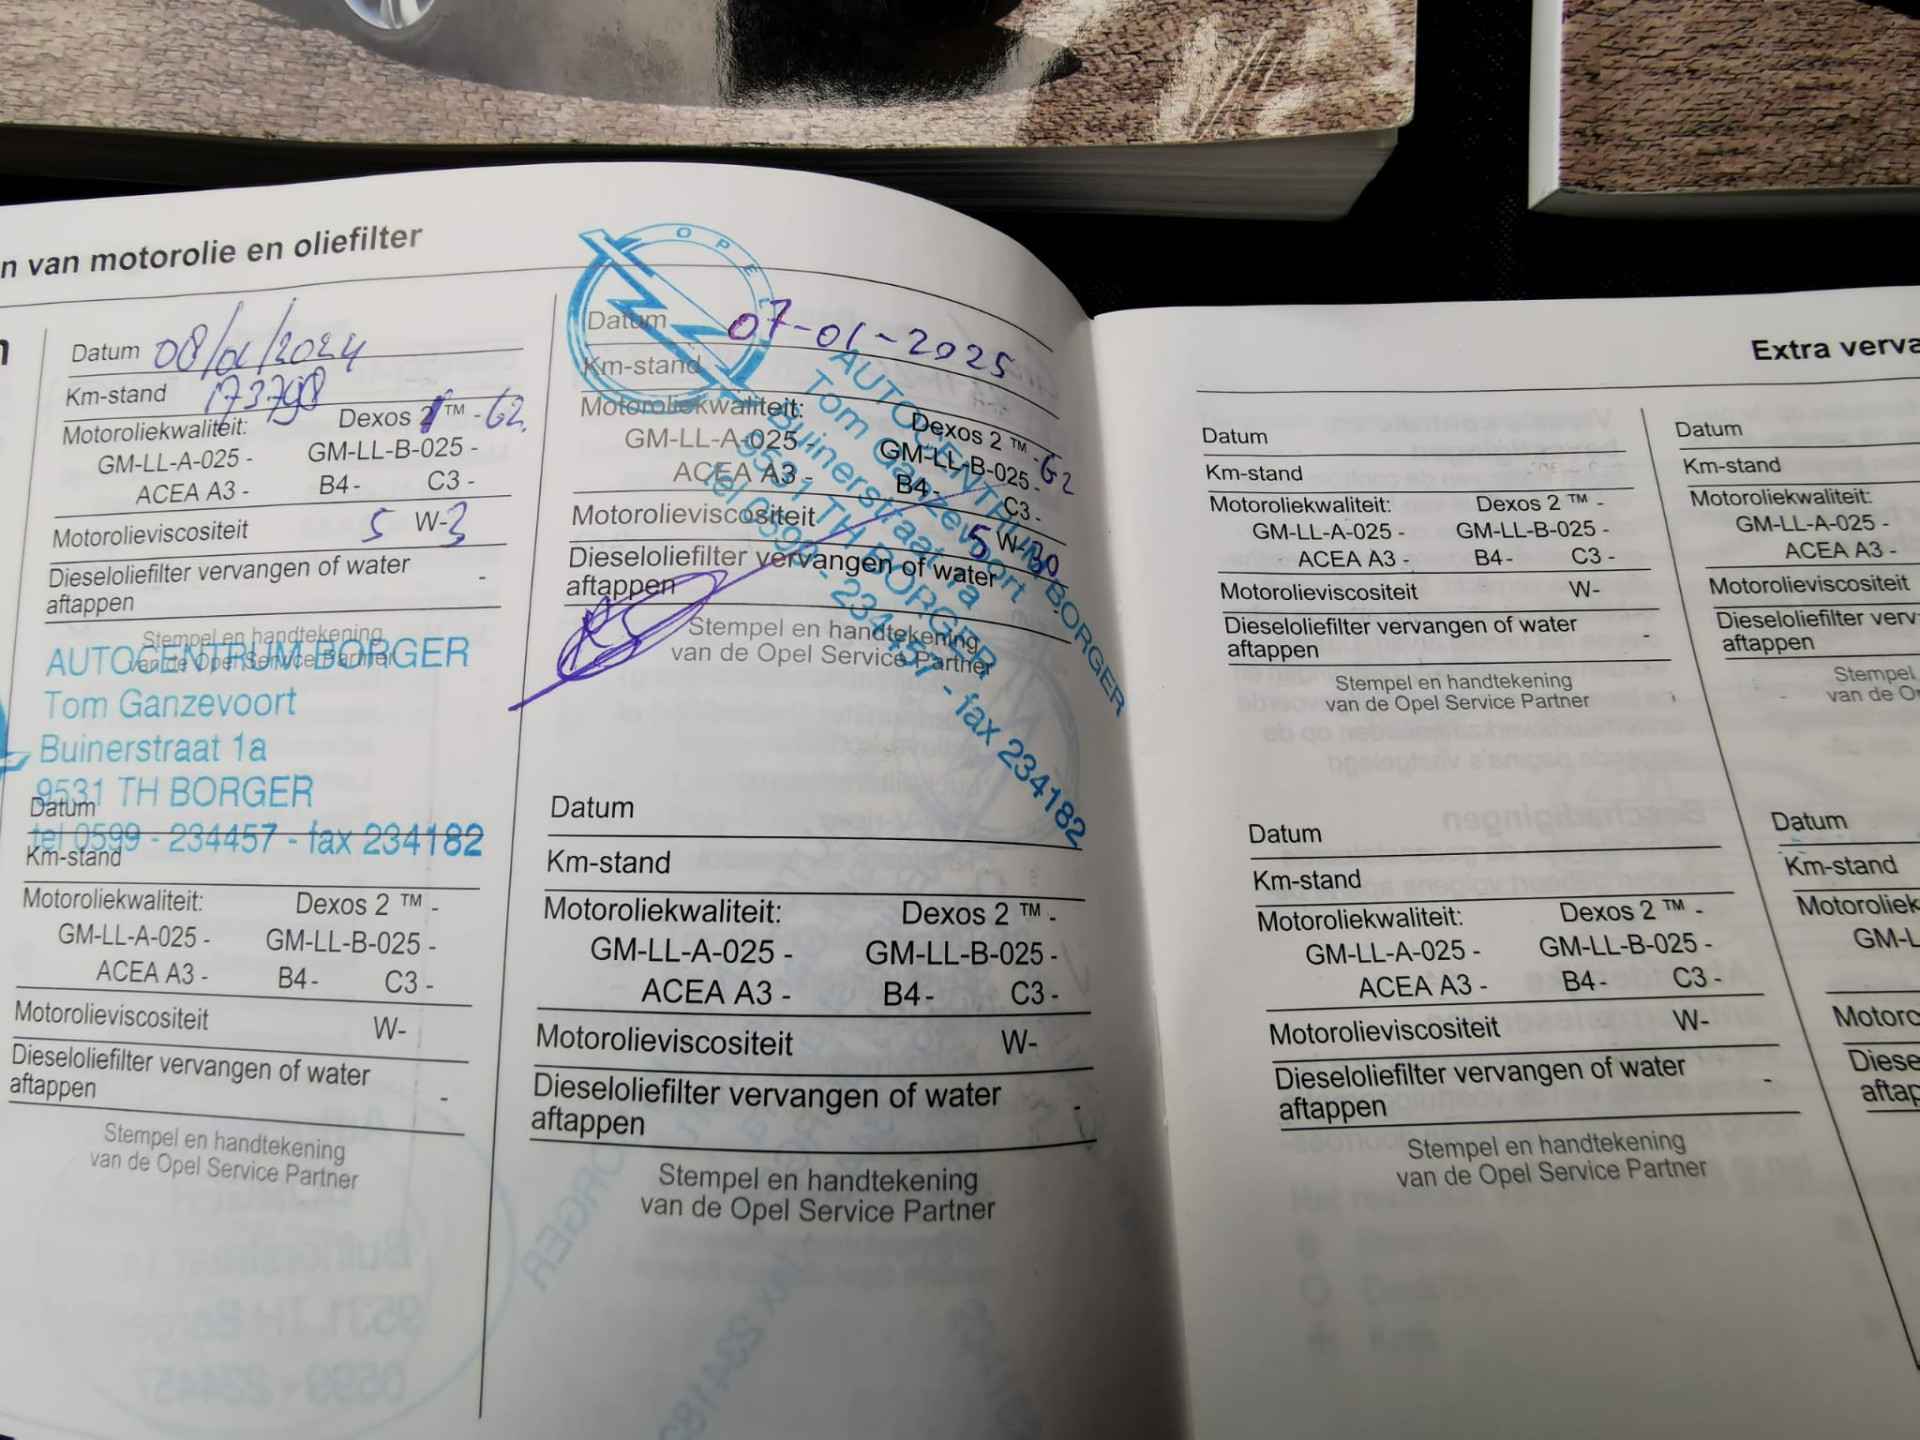 n van motorolie en oliefilter
Datum 08/01/2024
Km-stand 173798
Motoroliekwaliteit: Dexos 1 ™ - G2.
GM-LL-A-025 - GM-LL-B-025 -
ACEA A3 - B4 - C3 -
Motorolieviscositeit 5 W-3
Dieseloliefilter vervangen of water
aftappen -
Stempel en handtekening
van de Opel Service Partner
AUTOCENTRUM BORGER
Tom Ganzevoort
Buinerstraat 1a
9531 TH BORGER
tel 0599 - 234457 - fax 234182
Datum
Km-stand
Motoroliekwaliteit: Dexos 2 ™ -
GM-LL-A-025 - GM-LL-B-025 -
ACEA A3 - B4 - C3 -
Motorolieviscositeit W-
Dieseloliefilter vervangen of water
aftappen -
Stempel en handtekening
van de Opel Service Partner
OPEL
Datum 07-01-2025
Km-stand
Motoroliekwaliteit: Dexos 2 ™ - G2
GM-LL-A-025 - GM-LL-B-025 -
ACEA A3 - B4 - C3 -
Motorolieviscositeit 5 W-30
Dieseloliefilter vervangen of water
aftappen
Stempel en handtekening
van de Opel Service Partner
AUTOCENTRUM BORGER
Tom Ganzevoort
Buinerstraat 1a
9531 TH BORGER
tel 0599 - 234457 - fax 234182
Datum
Km-stand
Motoroliekwaliteit: Dexos 2 ™ -
GM-LL-A-025 - GM-LL-B-025 -
ACEA A3 - B4 - C3 -
Motorolieviscositeit W-
Dieseloliefilter vervangen of water
aftappen -
Stempel en handtekening
van de Opel Service Partner
Extra verva
Datum
Km-stand
Motoroliekwaliteit: Dexos 2 ™ -
GM-LL-A-025 - GM-LL-B-025 -
ACEA A3 - B4 - C3 -
Motorolieviscositeit W-
Dieseloliefilter vervangen of water
aftappen -
Stempel en handtekening
van de Opel Service Partner
Datum
Km-stand
Motoroliekwaliteit: Dexos 2 ™ -
GM-LL-A-025 - GM-LL-B-025 -
ACEA A3 - B4 - C3 -
Motorolieviscositeit W-
Dieseloliefilter vervangen of water
aftappen -
Stempel en handtekening
van de Opel Service Partner
Datum
Km-stand
Motoroliekwaliteit:
GM-LL-A-025 -
ACEA A3 -
Motorolieviscositeit
Dieseloliefilter verv
aftappen
Stempel
van de O
Datum
Km-stand
Motoroliek
GM-L
Motoro
Diese
aftap